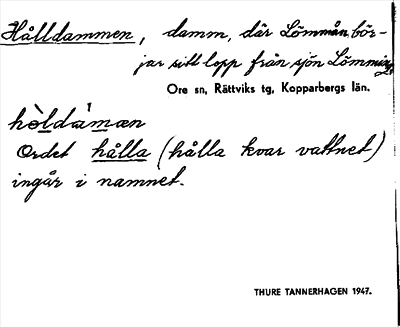 Hålldammen, damm, där Lömmån bör-
jar sitt lopp från sjön Lömming,
Ore sn, Rättviks tg, Kopparbergs län.
hòldámæn
Ordet hålla (hålla kvar vattnet)
ingår i namnet.
THURE TANNERHAGEN 1947.